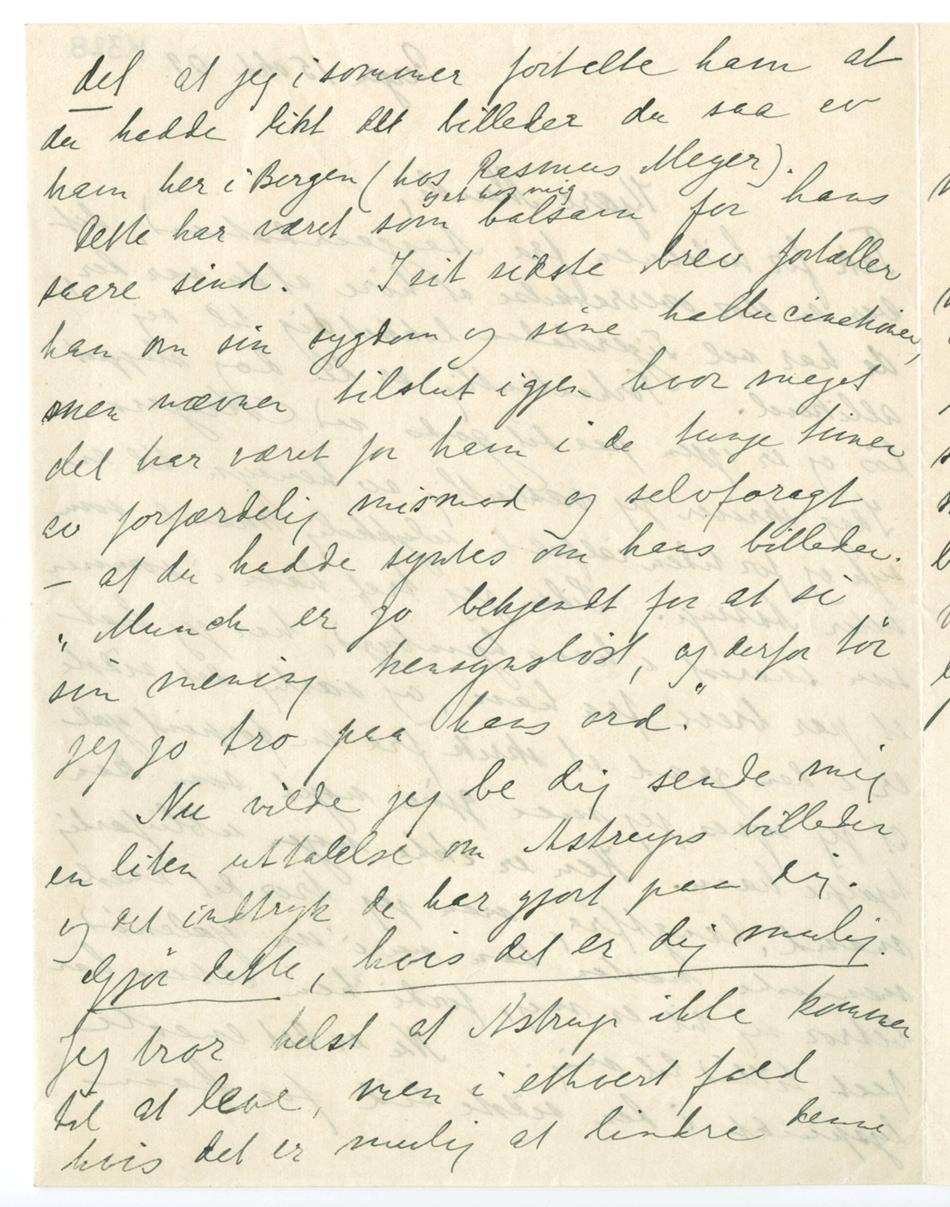 det at jeg i sommer fortelte ham at
du hadde likt det billeder du saa ev
ham her i Bergen (hos Rasmus Meyer).
Dette har været som balsam for hans
saare sind. I sit sidste brev fortæller
han om sin sygdom og sine hallucinationer,
men nævner tilslut igjen hvor meget
det har været for ham i de tunge timer
av forfærdelig mismod og selvforagt
– at du hadde syntes om hans billeder.
"Munch er jo bekjendt for at si
sin mening hensynsløst, og derfor tør
jeg jo tro paa hans ord."
Nu vilde jeg be dig sende mig
en liten uttalelse om Astrups billeder
og det indtryk de har gjort paa dig.
Gjør dette, hvis det er dig mulig.
Jeg tror helst at Astrup ikke kommer
til at leve, men i ethvert fald
hvis det er mulig at lindre denne